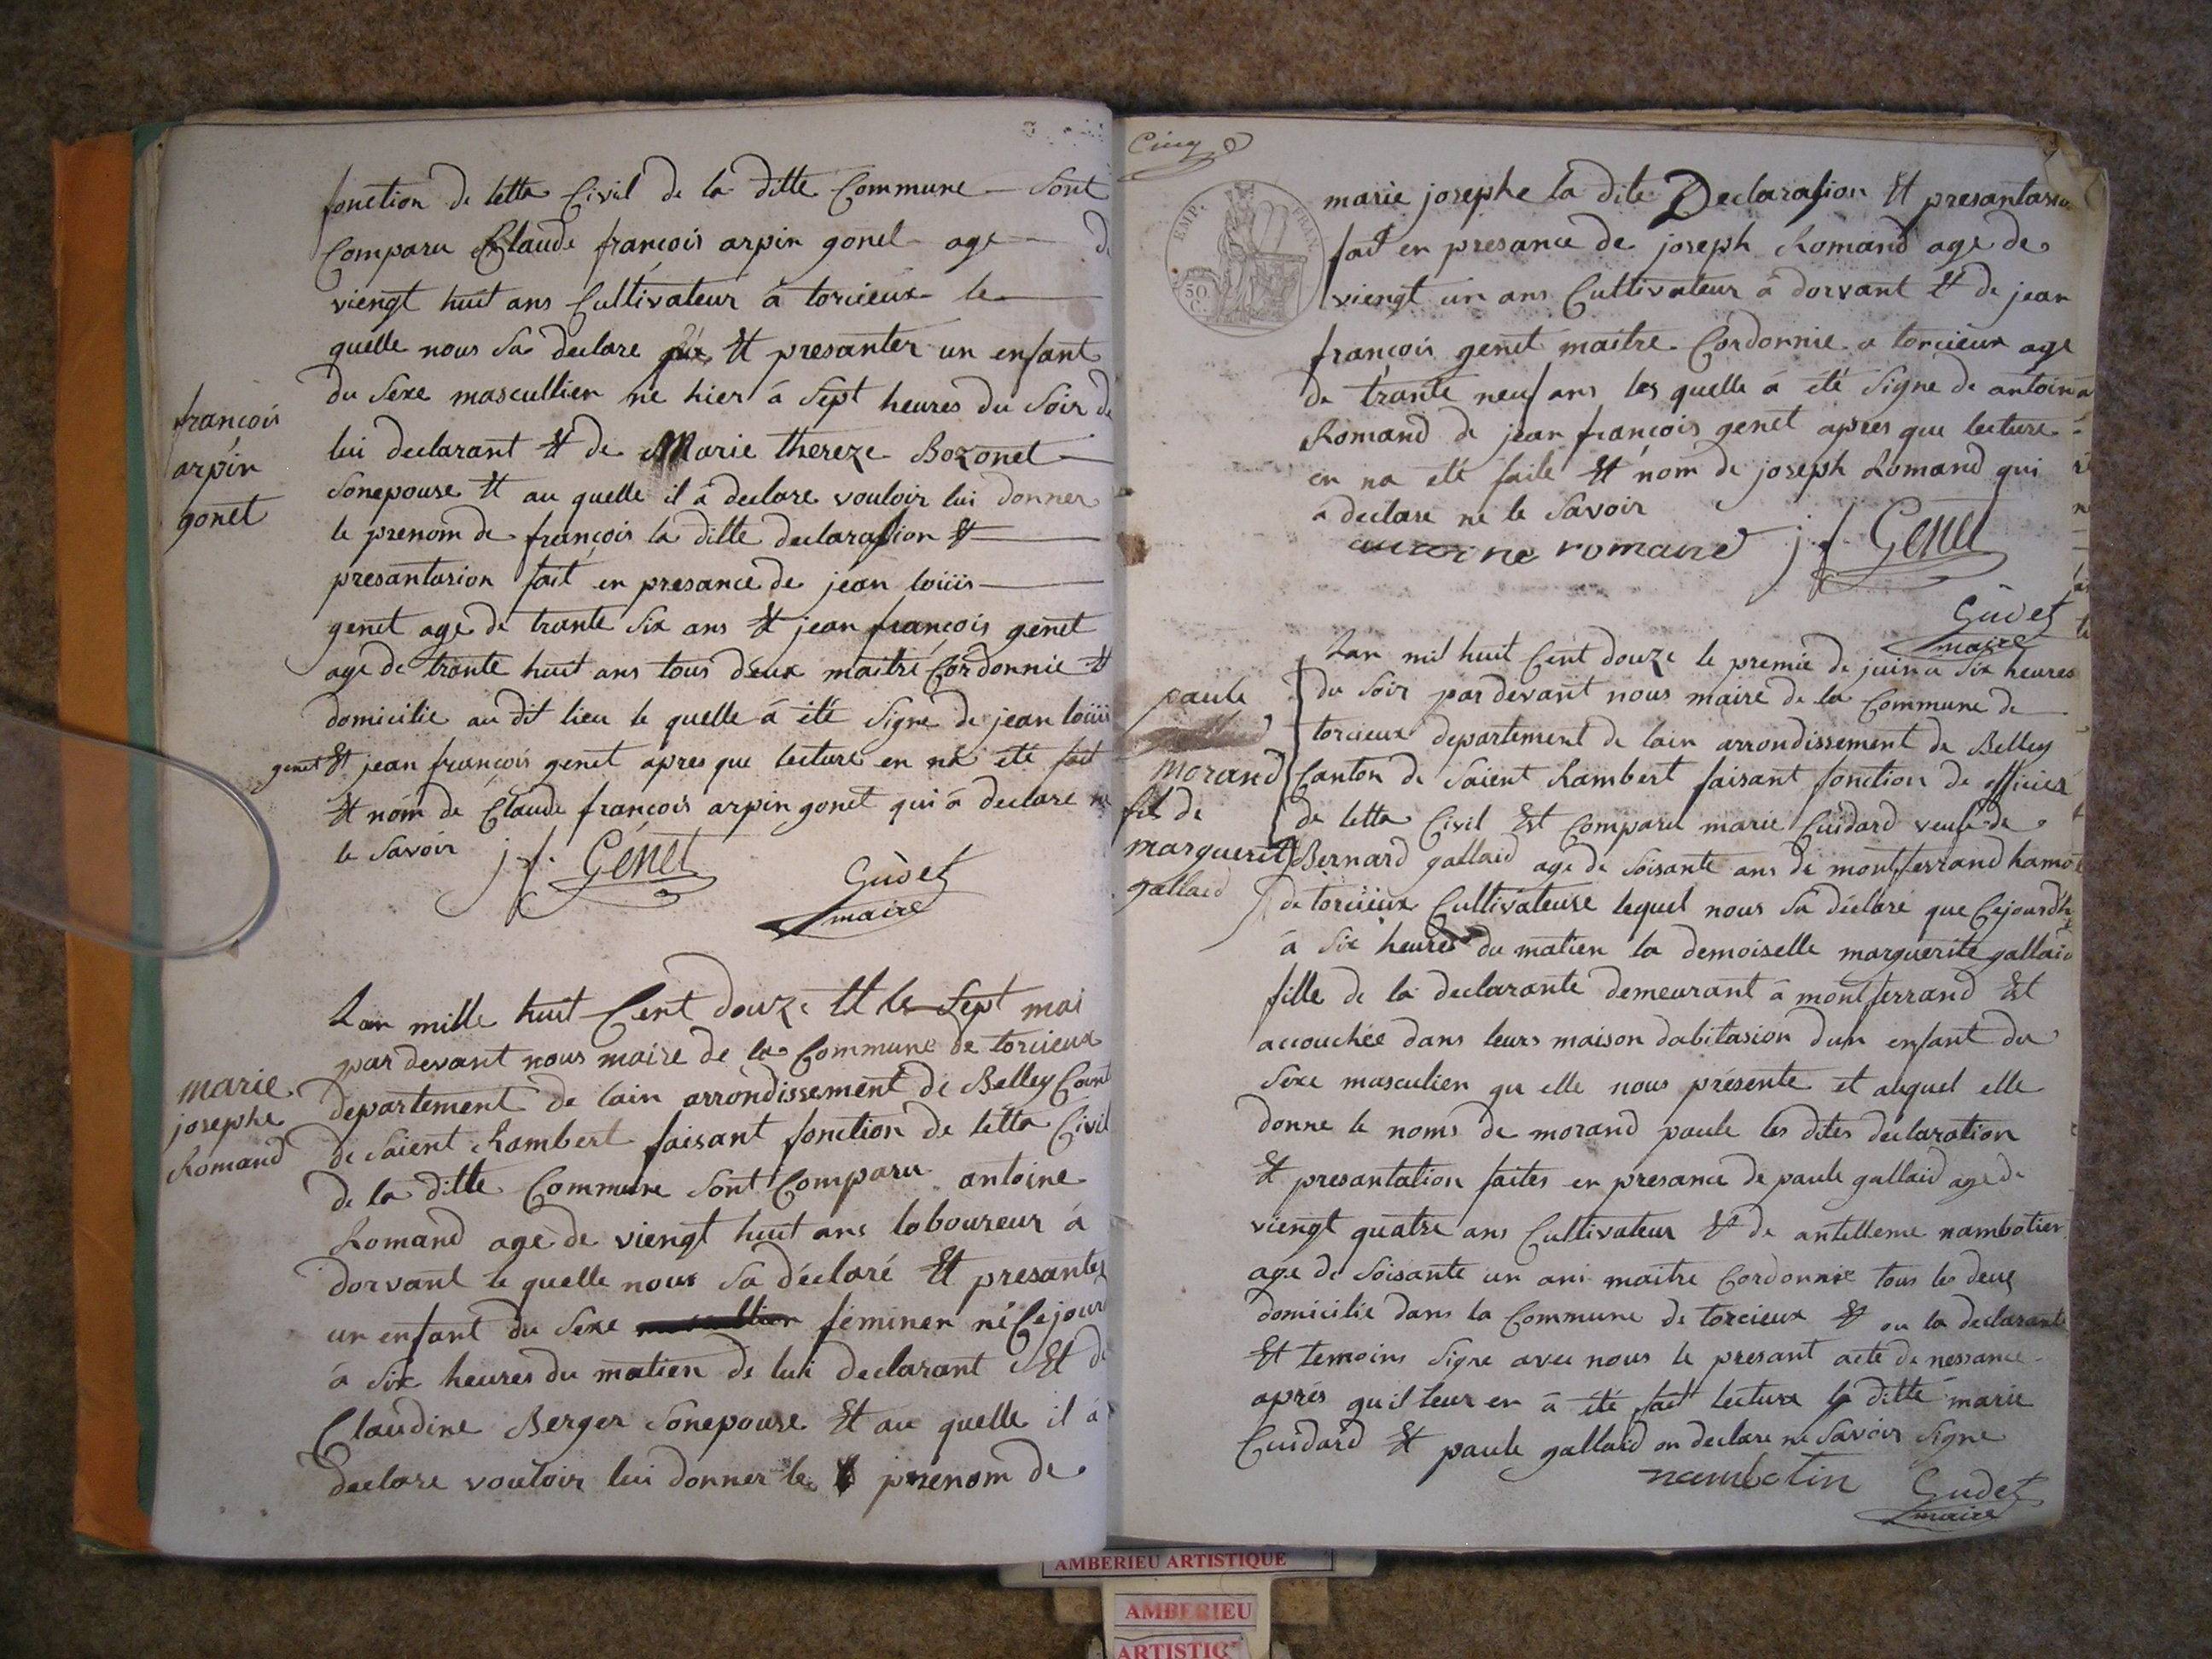 fonction de letta Civil de la ditte Commune — Sont
Comparu Claude françois arpin gonet age — de
viengt huit ans Cultivateur à torcieux le —
quelle nous Sa declare Et presanter un enfant
du Sexe mascullien né hier à Sept heures du Soir de
françois
arpin
gonet
lui declarant Et de Marie thereze Bozonet —
Sonepouse Et au quelle il a declare vouloir lui donner
le prenom de françois la ditte declarasion Et —
presantasion fait en presance de jean loüis —
genet age de trante Six ans Et jean françois genet
age de trante huit ans tous deux maitre Cordonnie Et
domicilie au dit lieu le quelle à été Signe de jean loüis
genet Et jean françois genet apres que lecture en na été fait
Et nom de Claude françois arpin gonet qui à declare ne
le Savoir
j f. Genet
Gudet
maire
Lan mille huit Cent douze Et le Sept mai
par devant nous maire de la Commune de torcieux
marie
josephe
Romand
departement de lain arrondissement de Belley Cant
de Saient Rambert faisant fonction de letta Civil
de la ditte Commune Sont Comparu antoine
Romand age de viengt huit ans laboureur à
dorvant le quelle nous Sa déclaré Et presanter
un enfant du Sexe féminen né Cejour
à Six heures du matien de lui declarant Et de
Claudine Berger Sonepouse Et au quelle il à
declare vouloir lui donner le prenom de
Cinq
EMP. FRAN.
50 C.
marie josephe la dite Declarasion Et presantasion
fait en presance de joseph Romand age de
viengt un ans Cultivateur à dorvant Et de jean
françois genet maitre Cordonnie a torcieux age
de trante neuf ans les quelle à été Signe de antoine
Romand de jean françois genet apres que lecture
en na été faite Et nom de joseph Romand qui
à declare ne le Savoir
antoine romand j f. Genet
Gudet
maire
Lan mil huit Cent douze le premie de juin a Six heures
du Soir pardevant nous maire de la Commune de
paule
morand
fil de
marguerit
gallaid
torcieux departement de lain arrondissement de Belley
Canton de Saient Rambert faisant fonction de officier
de letta Civil Est Comparu marie Cuidard veufe de
Bernard gallaid age de Soisante ans de montferrand hamo
de torcieux Cultivateuse lequel nous Sa déclaré que Cejourdh
à Six heures du matien la demoiselle marguerite gallaid
fille de la declarante demeurant à montferrand Est
accouchée dans leurs maison dabitasion dun enfant du
Sexe masculien qu elle nous présente et auquel elle
donne le noms de morand paule les dites déclaration
Et presantation faites en presance de paule gallaid age de
viengt quatre ans Cultivateur Et de antelleme nambotier
age de Soisante un ans maitre Cordonnie tous les deux
domicilie dans la Commune de torcieux Et ou la declarante
Et temoins Signe avec nous le presant acte de nessance
aprés qu il leur en à été fait lecture la ditte marie
Cuidard Et paule gallaid on declare ne Savoir Signe
nambotin
Gudet
maire
AMBERIEU ARTISTIQUE
AMBERIEU